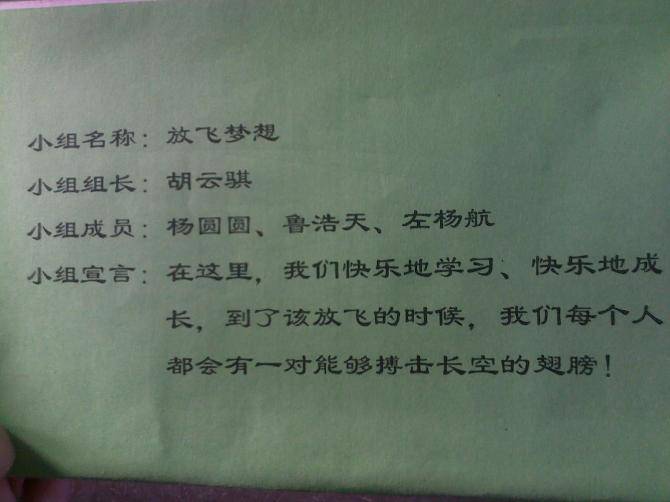 小组名称：放飞梦想
小组组长：胡云骐
小组成员：杨圆圆、鲁浩天、左杨航
小组宣言：在这里，我们快乐地学习、快乐地成
长，到了该放飞的时候，我们每个人
都会有一对能够搏击长空的翅膀！